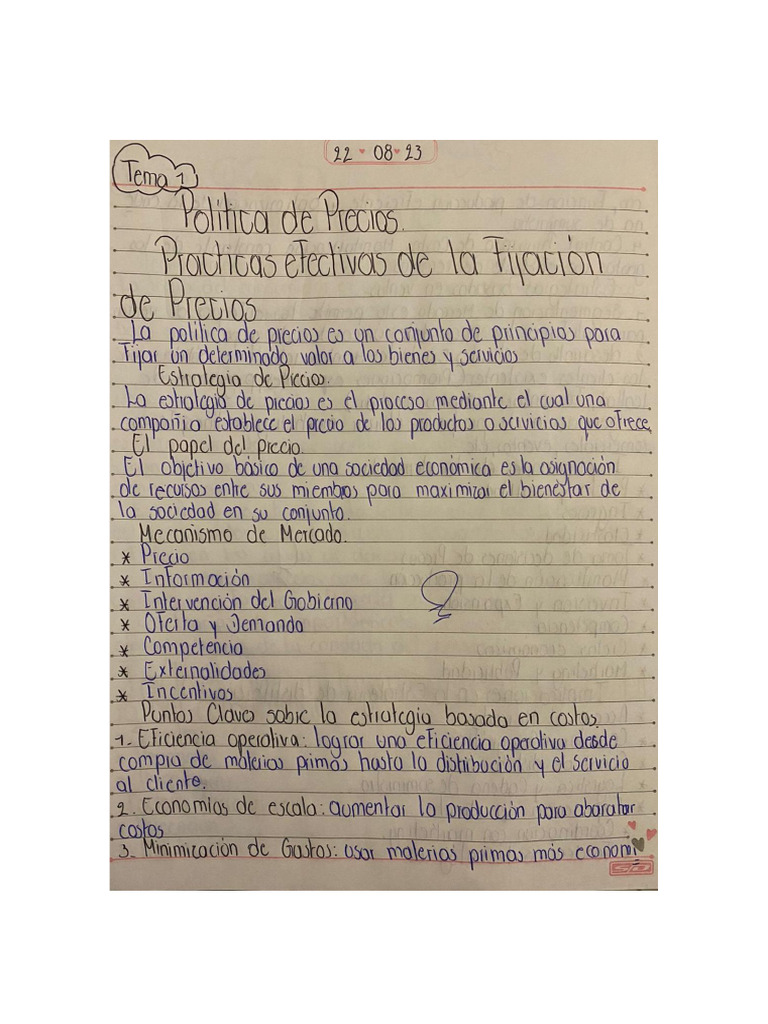 22 08 23
Tema 1
Politica de Precios.
Practicas efectivas de la Fijación
de Precios
La politica de precios es un conjunto de principios para
Fijar un determinado valor a los bienes y servicios
Estrategia de Precios.
La estrategia de precios es el proceso mediante el cual una
compañia establece el precio de los productos o servicios que ofrece.
El papel del precio.
El objetivo básico de una sociedad económica es la asignación
de recursos entre sus miembros para maximizar el bienestar de
la sociedad en su conjunto.
Mecanismo de Mercado.
* Precio
* Información
* Intervención del Gobierno
* Oferta y Demanda
* Competencia
* Externalidades
* Incentivos
Puntos Claves sobre la estrategia basada en costos.
1. Eficiencia operativa: lograr una eficiencia operativa desde
compra de materias primas hasta la distribución y el servicio
al cliente.
2. Economías de escala: aumentar la producción para abaratar
costos
3. Minimización de Gastos: usar materias primas más economi